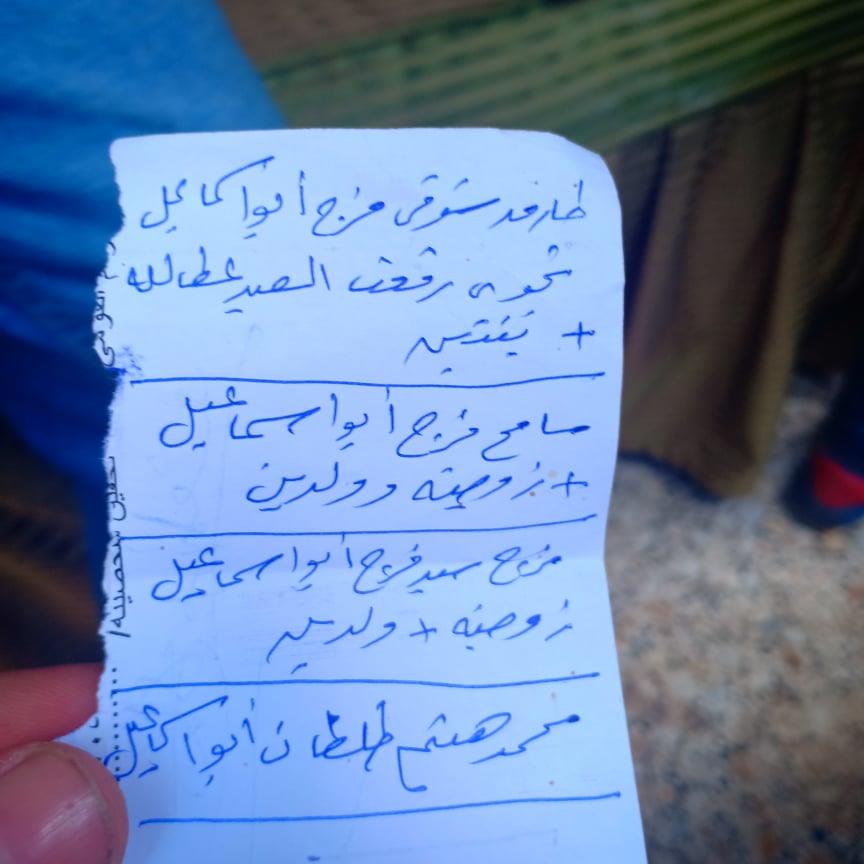 طارق دسوقى فرج أبوا سماعيل
نجوى رفعت السيد عطالله
+ بنتين
سامح فرج أبوا سماعيل
+ زوجته وولدين
فرج سيد فرج أبوا سماعيل
زوجته + ولدين
محمد هيثم سلطان أبوا سماعيل
تحقيق شخصية /